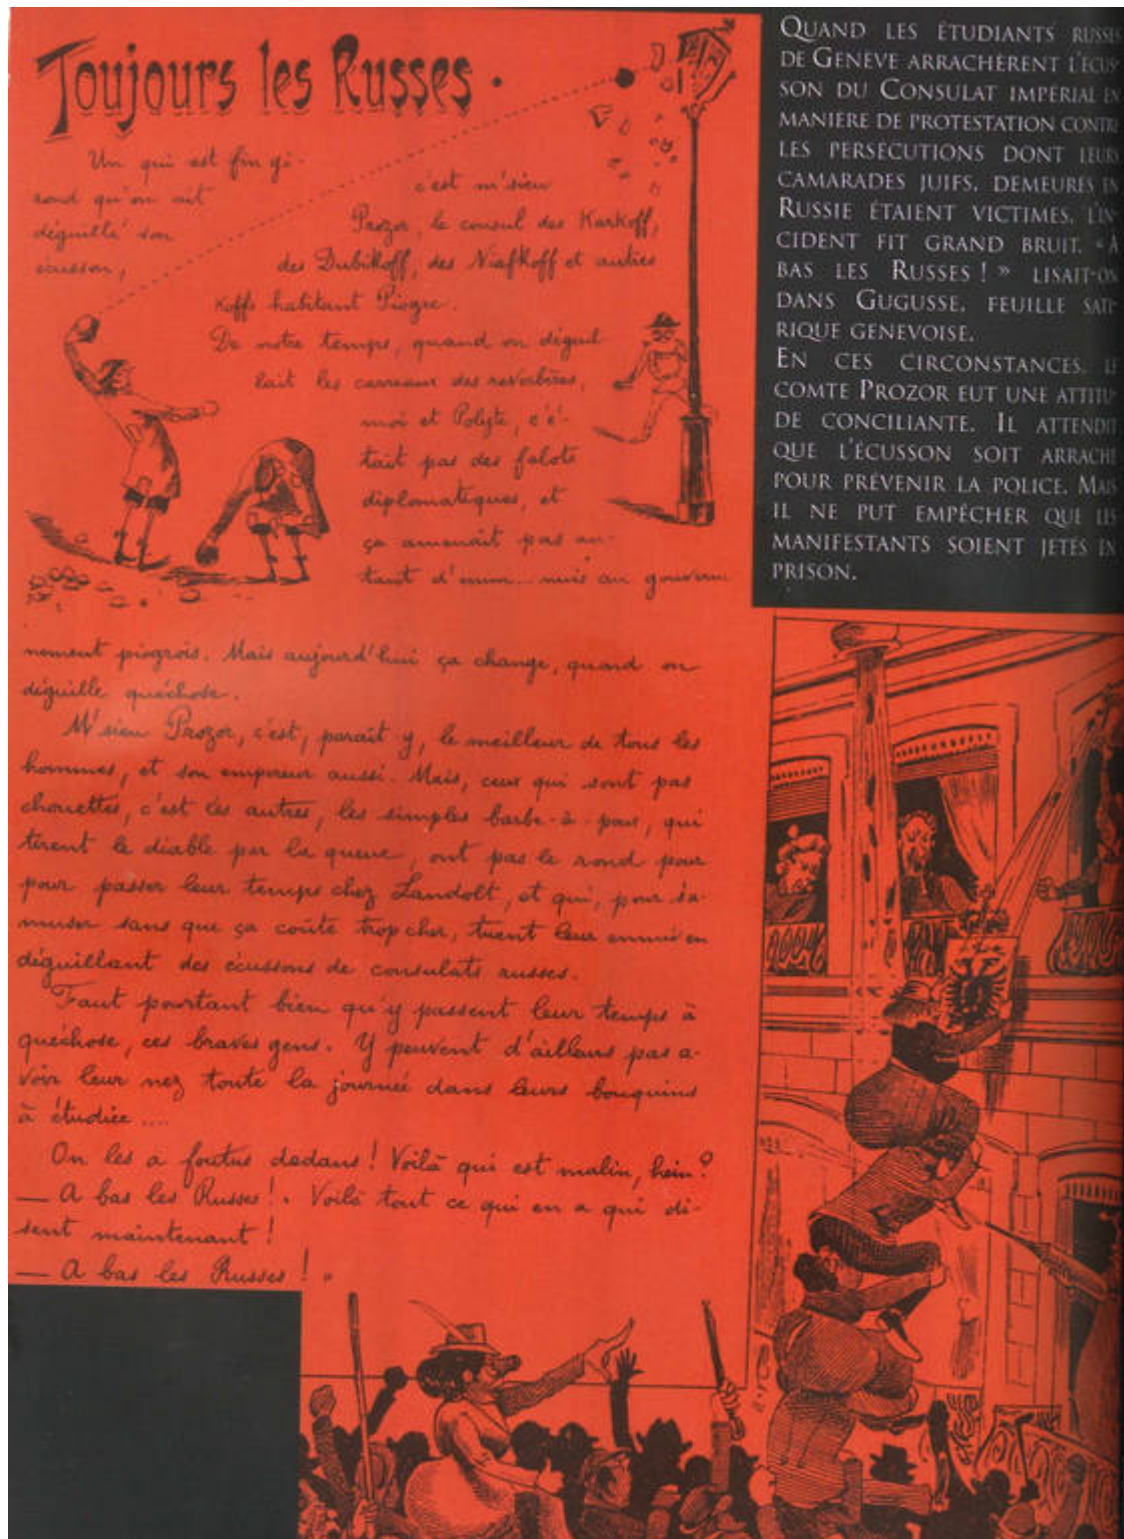 Toujours les Russes.
Un qui est fin gi-
rond qu'on ait
déguillé son
écusson,
c'est m'sieu
Prozor, le consul des Karkoff,
des Dubikoff, des Niafkoff et autres
Koffs habitant Piogre.
De notre temps, quand on déguil-
lait les carreaux des reverbères,
moi et Polyte, c'é-
tait pas des falots
diplomatiques, et
ça amenait pas au-
tant d'ennui... nuis au gouverne
nement piogrois. Mais aujourd'hui ça change, quand on
diguille quéchose.
M'sieu Prozor, c'est, parait y, le meilleur de tous les
hommes, et son empereur aussi. Mais, ceux qui sont pas
chouettes, c'est les autres, les simples barbe-à-poux, qui
tirent le diable par la queue, ont pas le rond pour
pour passer leur temps chez Landolt, et qui, pour s'a-
muser sans que ça coûte trop cher, tuent leur ennui en
déguillant des écussons de consulats russes.
Faut pourtant bien qu'y passent leur temps à
quéchose, ces braves gens. Y peuvent d'ailleurs pas a-
voir leur nez toute la journée dans leurs bouquins
à étudiée ....
On les a foutus dedans ! Voilà qui est malin, hein ?
— A bas les Russes ! . Voilà tout ce qui en a qui di-
sent maintenant !
— A bas les Russes ! »
QUAND LES ÉTUDIANTS RUSSES
DE GENÈVE ARRACHÈRENT L'ÉCUS-
SON DU CONSULAT IMPÉRIAL EN
MANIÈRE DE PROTESTATION CONTRE
LES PERSÉCUTIONS DONT LEURS
CAMARADES JUIFS, DEMEURÉS EN
RUSSIE ÉTAIENT VICTIMES, L'IN-
CIDENT FIT GRAND BRUIT. « À
BAS LES RUSSES ! » LISAIT-ON
DANS GUGUSSE, FEUILLE SATI-
RIQUE GENEVOISE.
EN CES CIRCONSTANCES, LE
COMTE PROZOR EUT UNE ATTITU-
DE CONCILIANTE. IL ATTENDIT
QUE L'ÉCUSSON SOIT ARRACHÉ
POUR PRÉVENIR LA POLICE. MAIS
IL NE PUT EMPÊCHER QUE LES
MANIFESTANTS SOIENT JETÉS EN
PRISON.